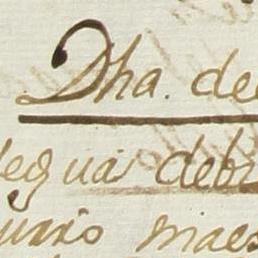 Dha. de
legua debi
uario maes